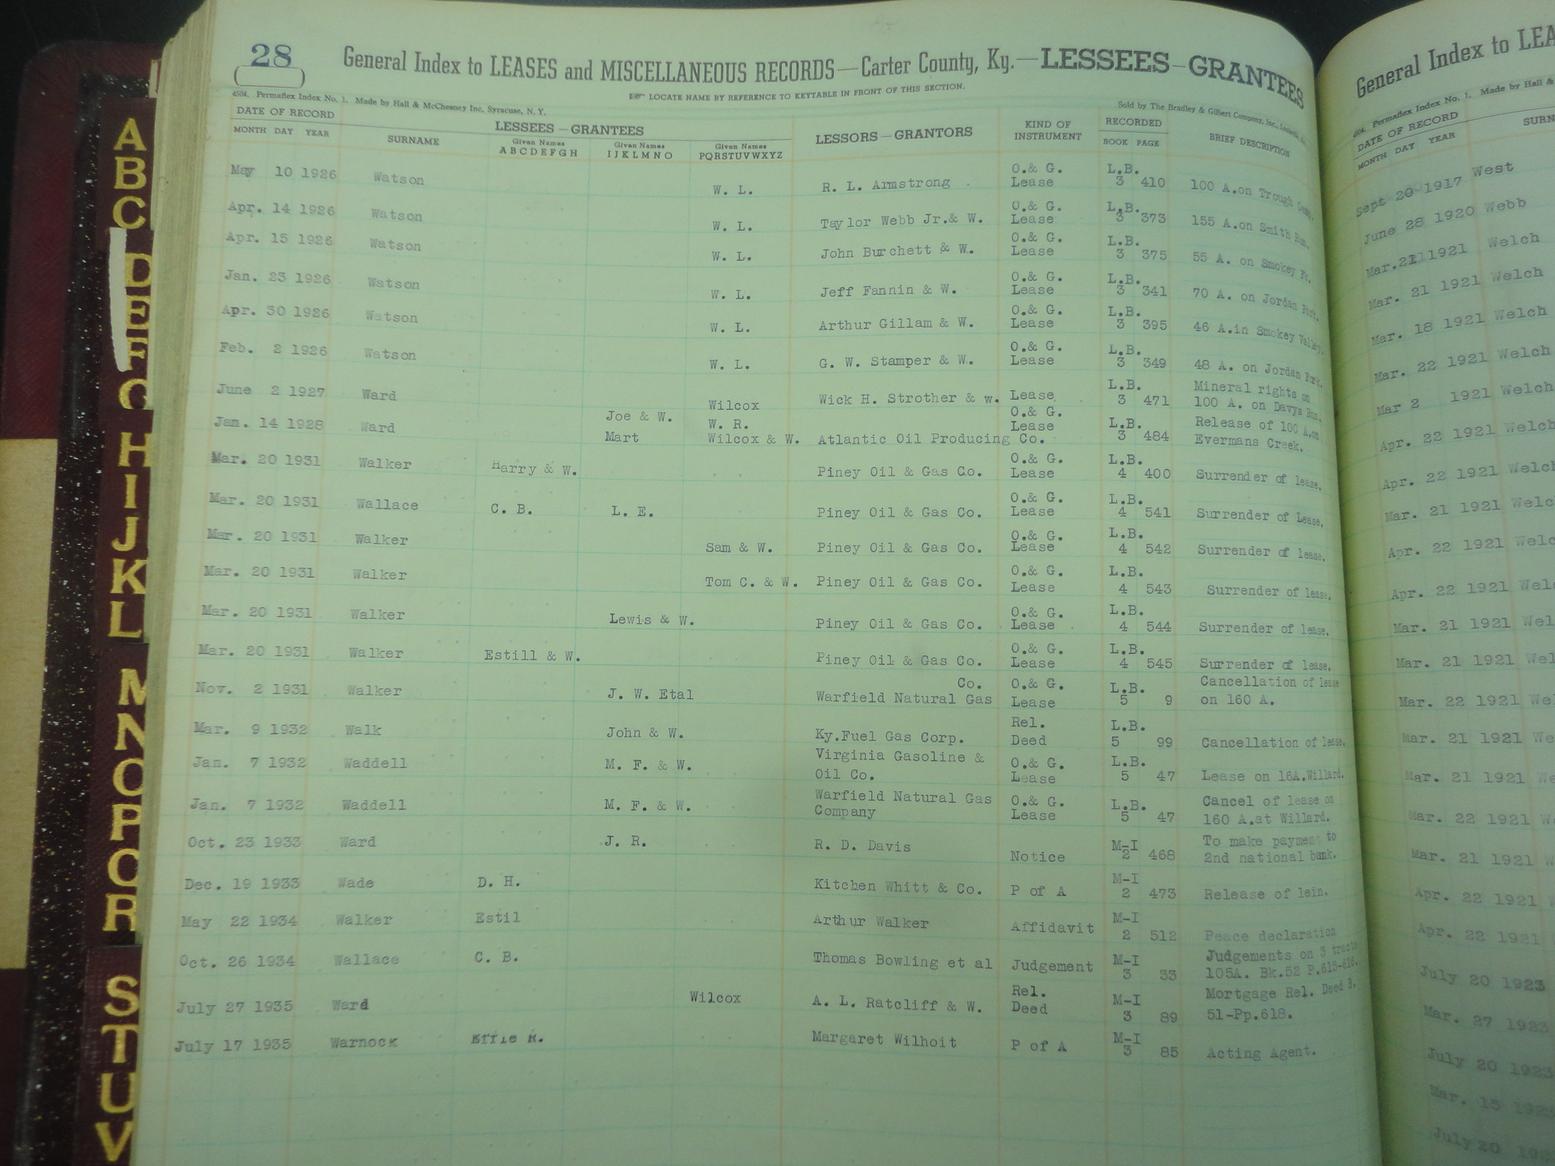 28
General Index to LEASES and MISCELLANEOUS RECORDS—Carter County, Ky.—LESSEES—GRANTEES
4504. Permaflex Index No. 1. Made by Hall & McChesney Inc. Syracuse, N. Y.
LOCATE NAME BY REFERENCE TO KEYTABLE IN FRONT OF THIS SECTION.
Sold by The Bradley & Gilbert Company, Inc.,
DATE OF RECORD LESSEES—GRANTEES LESSORS—GRANTORS KIND OF INSTRUMENT RECORDED BRIEF DESCRIPTION
MONTH DAY YEAR SURNAME Given Names ABCDEFGH Given Names IJKLMNO Given Names PQRSTUVWXYZ BOOK PAGE
May 10 1926 Watson W. L. R. L. Armstrong O.& G. Lease L.B. 3 410 100 A.on Trough
Apr. 14 1926 Watson W. L. Taylor Webb Jr.& W. O.& G. Lease L.B. 3 373 155 A.on Smith Run.
Apr. 15 1926 Watson W. L. John Burchett & W. O.& G. Lease L.B. 3 375 55 A. on Smokey
Jan. 23 1926 Watson W. L. Jeff Fannin & W. O.& G. Lease L.B. 3 341 70 A. on Jordan Fork.
Apr. 30 1926 Watson W. L. Arthur Gillam & W. O.& G. Lease L.B. 3 395 46 A.in Smokey Valley.
Feb. 2 1926 Watson W. L. G. W. Stamper & W. O.& G. Lease L.B. 3 349 48 A. on Jordan Fork.
June 2 1927 Ward Wilcox Wick H. Strother & w. Lease L.B. 3 471 Mineral rights on 100 A. on Davys Run.
Jan. 14 1928 Ward Joe & W. Mart W. R. Wilcox & W. Atlantic Oil Producing Co. O.& G. L.B. 3 484 Release of 100 A.on Evermans Creek.
Mar. 20 1931 Walker Harry & W. Piney Oil & Gas Co. O.& G. Lease L.B. 4 400 Surrender of lease.
Mar. 20 1931 Wallace C. B. L. E. Piney Oil & Gas Co. O.& G. Lease L.B. 4 541 Surrender of Lease.
Mar. 20 1931 Walker Sam & W. Piney Oil & Gas Co. O.& G. Lease L.B. 4 542 Surrender of lease.
Mar. 20 1931 Walker Tom C. & W. Piney Oil & Gas Co. O.& G. Lease L.B. 4 543 Surrender of lease.
Mar. 20 1931 Walker Lewis & W. Piney Oil & Gas Co. O.& G. Lease L.B. 4 544 Surrender of lease.
Mar. 20 1931 Walker Estill & W. Piney Oil & Gas Co. O.& G. Lease L.B. 4 545 Surrender of lease.
Nov. 2 1931 Walker J. W. Etal Warfield Natural Gas Co. O.& G. Lease L.B. 5 9 Cancellation of lease on 160 A.
Mar. 9 1932 Walk John & W. Ky.Fuel Gas Corp. Rel. Deed L.B. 5 99 Cancellation of lease.
Jan. 7 1932 Waddell M. F. & W. Virginia Gasoline & Oil Co. O.& G. Lease L.B. 5 47 Lease on 16A.Willard.
Jan. 7 1932 Waddell M. F. & W. Warfield Natural Gas Company O.& G. Lease L.B. 5 47 Cancel of lease on 160 A.at Willard.
Oct. 23 1933 Ward J. R. R. D. Davis Notice M-I 2 468 To make payment to 2nd national bank.
Dec. 19 1933 Wade D. H. Kitchen Whitt & Co. P of A M-I 2 473 Release of lein.
May 22 1934 Walker Estil Arthur Walker Affidavit M-I 2 512 Peace declaration
Oct. 26 1934 Wallace C. B. Thomas Bowling et al Judgement M-I 3 33 Judgements on 3 tracts 105A. Bk.52 P.615-616.
July 27 1935 Ward Wilcox A. L. Ratcliff & W. Rel. Deed M-I 3 89 Mortgage Rel. Deed B. 51-Pp.618.
July 17 1935 Warnock Effie R. Margaret Wilhoit P of A M-I 3 85 Acting Agent.
A
B
C
D
E
F
G
H
I
J
K
L
M
N
O
P
Q
R
S
T
U
V
General Index to LEA
Permaflex Index No. 1. Made by Hall &
DATE OF RECORD
MONTH DAY YEAR SURN
Sept 20 1917 West
June 28 1920 Webb
Mar.21 1921 Welch
Mar. 21 1921 Welch
Mar. 18 1921 Welch
Mar. 22 1921 Welch
Mar 2 1921 Welch
Apr. 22 1921 Welch
Apr. 22 1921 Welch
Mar. 21 1921 Welc
Apr. 22 1921 Welc
Apr. 22 1921 Wel
Mar. 21 1921 Wel
Mar. 21 1921 Wel
Mar. 22 1921 We
Mar. 21 1921 We
Mar. 21 1921 We
Mar. 22 1921 W
Mar. 21 1921 W
Apr. 22 1921
Apr. 22 1921
July 20 1923
Mar. 27 1923
July 20 1923
Mar. 15
July 20